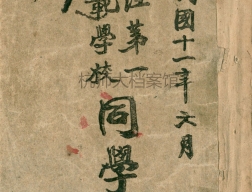 國十一年六月
第一
範學校
同學
杭师大档案馆